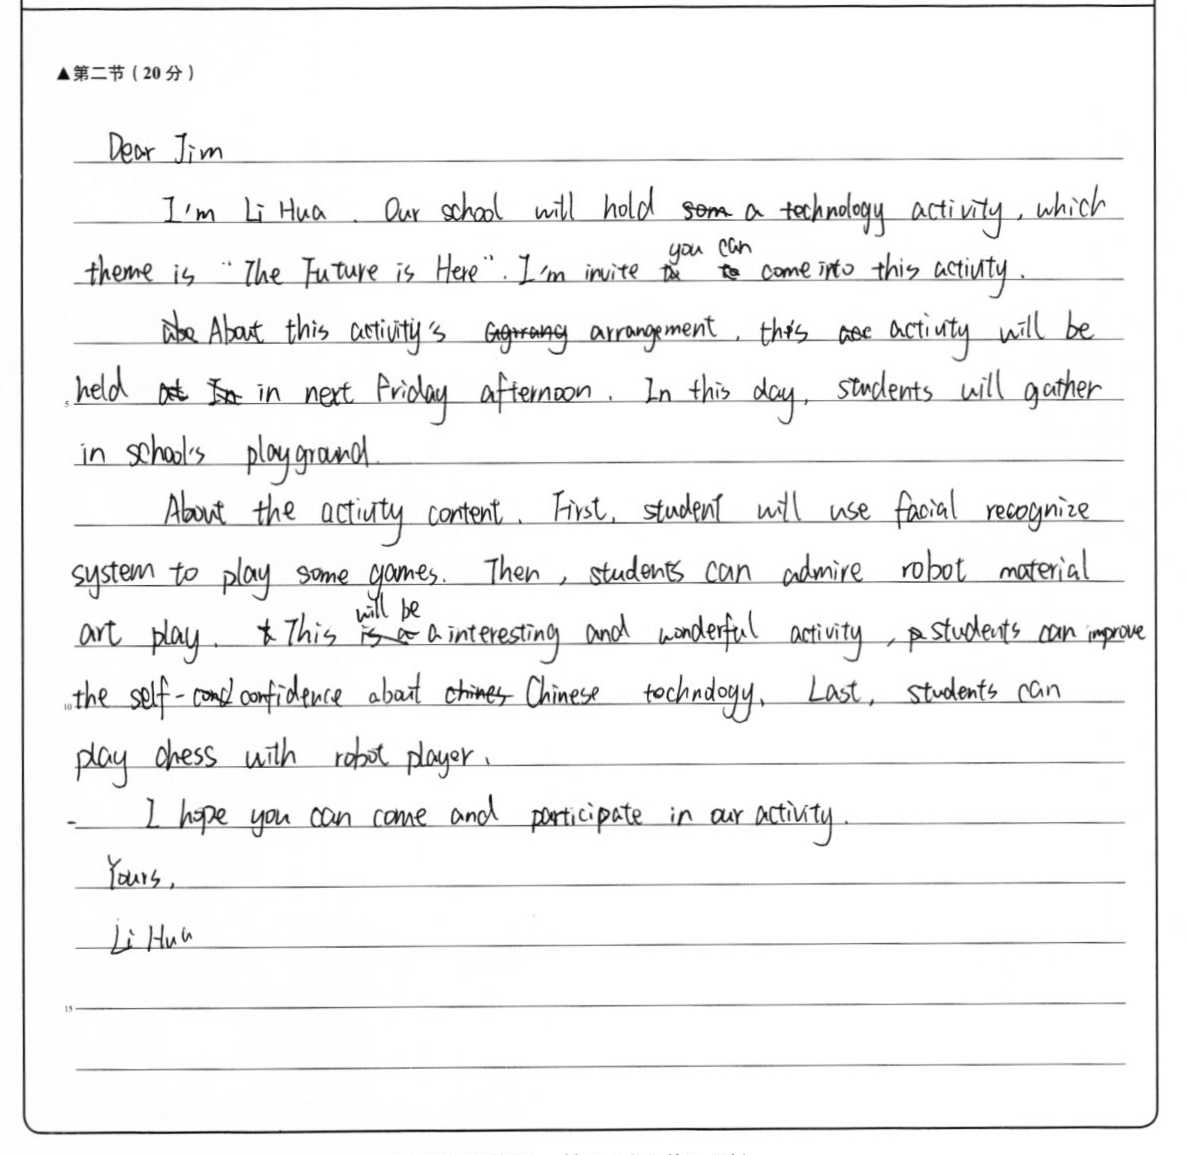 ▲第二节(20分)
Dear Jim
I'm Li Hua. Our school will hold a technology activity, which
theme is "The Future is Here". I'm invite you can come into this activity.
About this activity's arrangement, this activity will be
5 held in next Friday afternoon. In this day, students will gather
in school's playground.
About the activity content. First, student will use facial recognize
system to play some games. Then, students can admire robot material
art play. This will be a interesting and wonderful activity, students can improve
10 the self-confidence about Chinese technology. Last, students can
play chess with robot player.
I hope you can come and participate in our activity.
Yours,
Li Hua
15